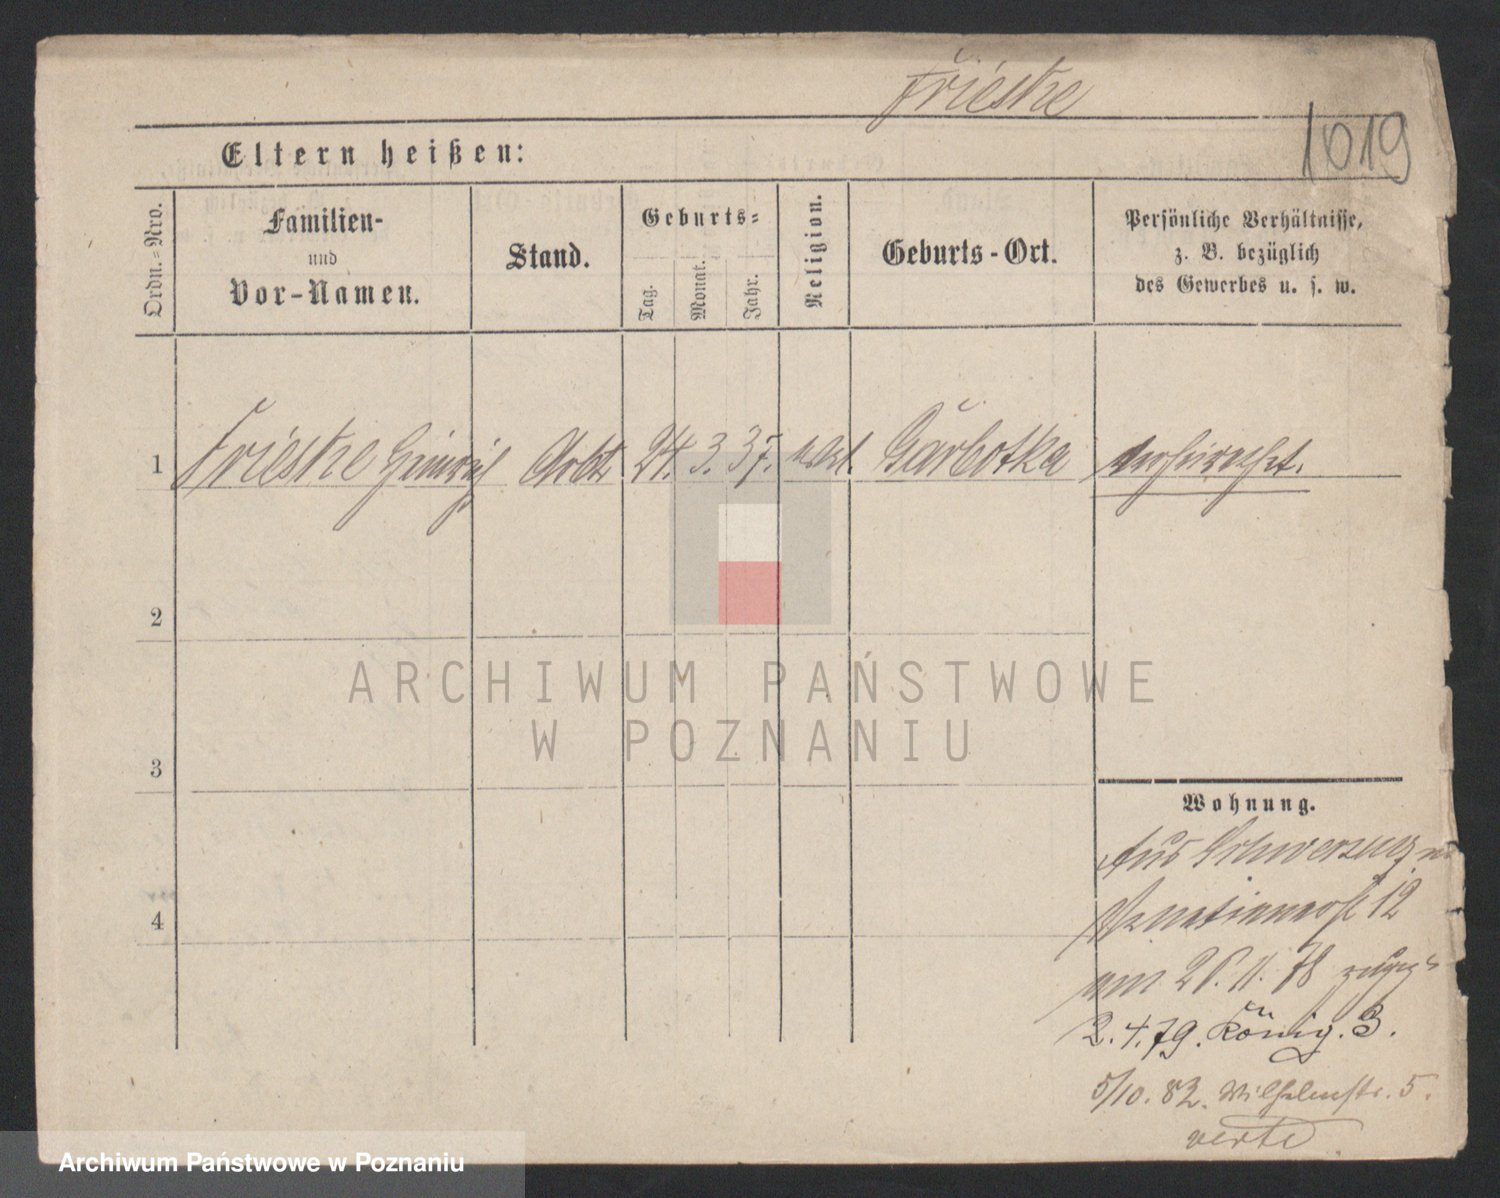 Frieske
1019
Eltern heißen:
Ordn.=Nro.
Familien-
und
Vor-Namen.
Stand.
Geburts=
Tag.
Monat.
Jahr.
Religion.
Geburts-Ort.
Persönliche Verhältnisse,
z. B. bezüglich
des Gewerbes u. s. w.
1 Frieske Heinrich Arbtr 24. 3. 37. Garbotka verheirathet.
2
3
4
ARCHIWUM PAŃSTWOWE
W POZNANIU
Wohnung.
Aus Schwersenz
Venetianerst 12
am 11. 78
2. 4. 79. König. 3.
5/10. 82. Wilhelmstr. 5.
verte
Archiwum Państwowe w Poznaniu